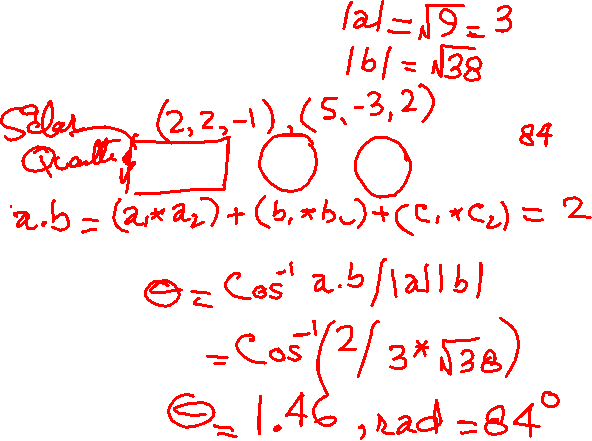 |a| = √9 = 3
|b| = √38
(2, 2, -1), (5, -3, 2)
84
a.b = (a₁*a₂) + (b₁*b₂) + (c₁*c₂) = 2
θ = Cos⁻¹ a.b/|a||b|
= Cos⁻¹(2/3*√38)
θ = 1.46, rad = 84°